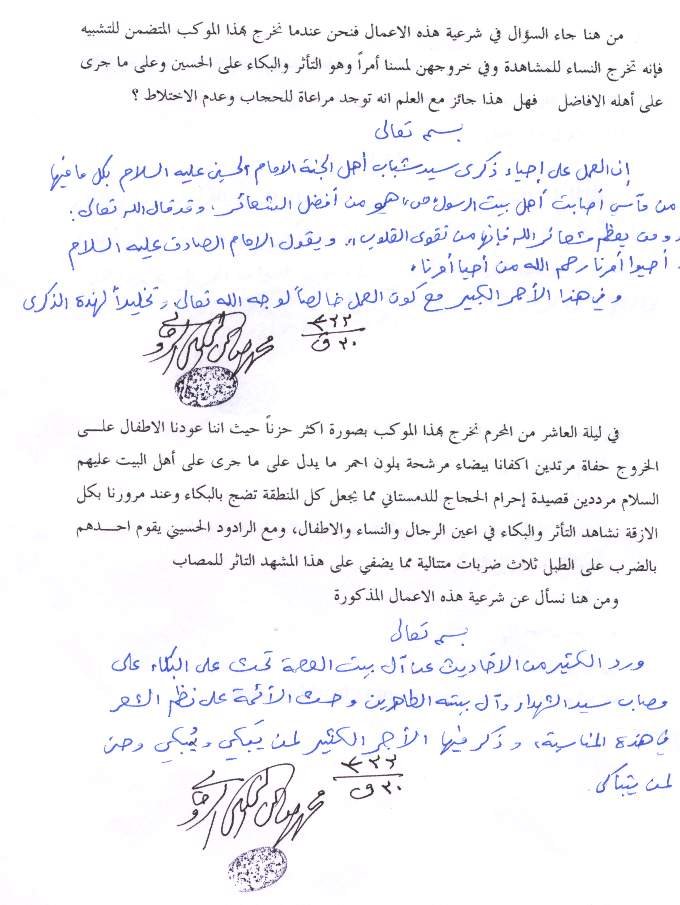 من هنا جاء السؤال في شرعية هذه الاعمال فنحن عندما نخرج بهذا الموكب المتضمن للتشبيه
فإنه تخرج النساء للمشاهدة وفي خروجهن لمسنا أمراً وهو التأثر والبكاء على الحسين وعلى ما جرى
على أهله الافاضل فهل هذا جائز مع العلم انه توجد مراعاة للحجاب وعدم الاختلاط ؟
بسم تعالى
إن العمل على إحياء ذكرى سيد شباب أهل الجنة الامام الحسين عليه السلام بكل ما فيها
من مآسي أصابت أهل بيت الرسول (ص) هو من أفضل الشعائر، وقد قال الله تعالى:
ومن يعظم شعائر الله فإنها من تقوى القلوب، ويقول الامام الصادق عليه السلام
أحيوا أمرنا رحم الله من أحيا أمرنا.
وفي هذا الأجر الكبير مع كون العمل خالصاً لوجه الله تعالى وتخليداً لهذه الذكرى
في ليلة العاشر من المحرم نخرج بهذا الموكب بصورة اكثر حزناً حيث اننا عودنا الاطفال علـــى
الخروج حفاة مرتدين اكفانا بيضاء مرشحة بلون احمر ما يدل على ما جرى على أهل البيت عليهم
السلام مرددين قصيدة إحرام الحجاج للدمستاني مما يجعل كل المنطقة تضج بالبكاء وعند مرورنا بكل
الازقة نشاهد التأثر والبكاء في اعين الرجال والنساء والاطفال، ومع الرادود الحسيني يقوم احـــدهم
بالضرب على الطبل ثلاث ضربات متتالية مما يضفي على هذا المشهد التاثر للمصاب
ومن هنا نسأل عن شرعية هذه الاعمال المذكورة
بسم تعالى
ورد الكثير من الاحاديث عن آل بيت العصمة تحث على البكاء على
مصاب سيد الشهداء وآل بيته الطاهرين وحث الأئمة على نظم الشعر
في هذه المناسبة، وذكر فيها الأجر الكثير لمن يَبكي ويُبكي وحتى
لمن يتباكى.